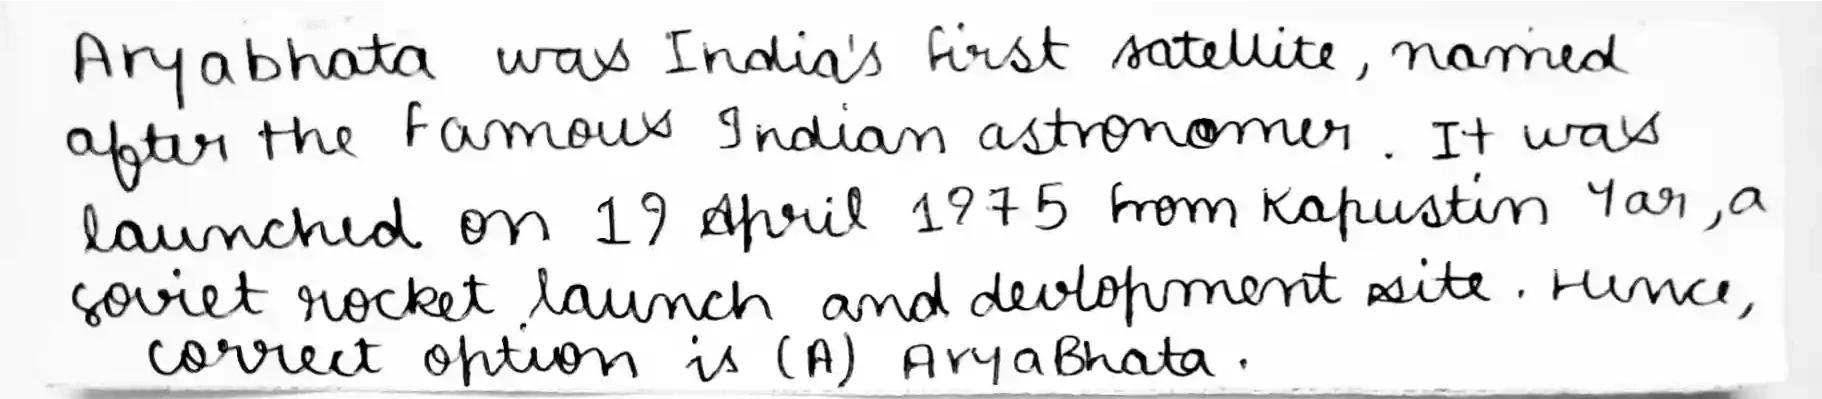 Aryabhata was India's first satellite, named
after the famous Indian astronomer. It was
launched on 19 April 1975 from Kapustin Yar, a
soviet rocket launch and devlopment site. Hence,
correct option is (A) AryaBhata.